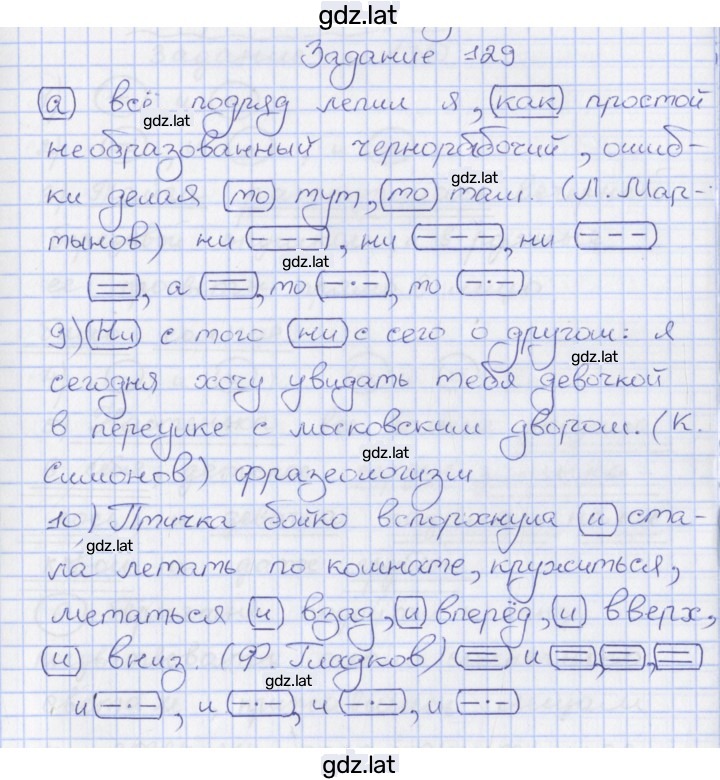 gdz.lat
Задание 129
а всё подряд лепил я, как простой
gdz.lat
необразованный чернорабочий, ошиб-
gdz.lat
ки делая то тут, то там. (Л. Мар-
тынов) ни , ни , ни
gdz.lat
, а , то , то
9) Ни с того ни с сего о другом: я
gdz.lat
сегодня хочу увидать тебя девочкой
в переулке с московским двором. (К.
gdz.lat
Симонов) фразеологизм
10) Птичка бойко вспорхнула и ста-
gdz.lat
ла летать по комнате, кружиться,
метаться и взад, и вперёд, и вверх,
и вниз. (Ф. Гладков) и , ,
gdz.lat
и , и , и , и
gdz.lat